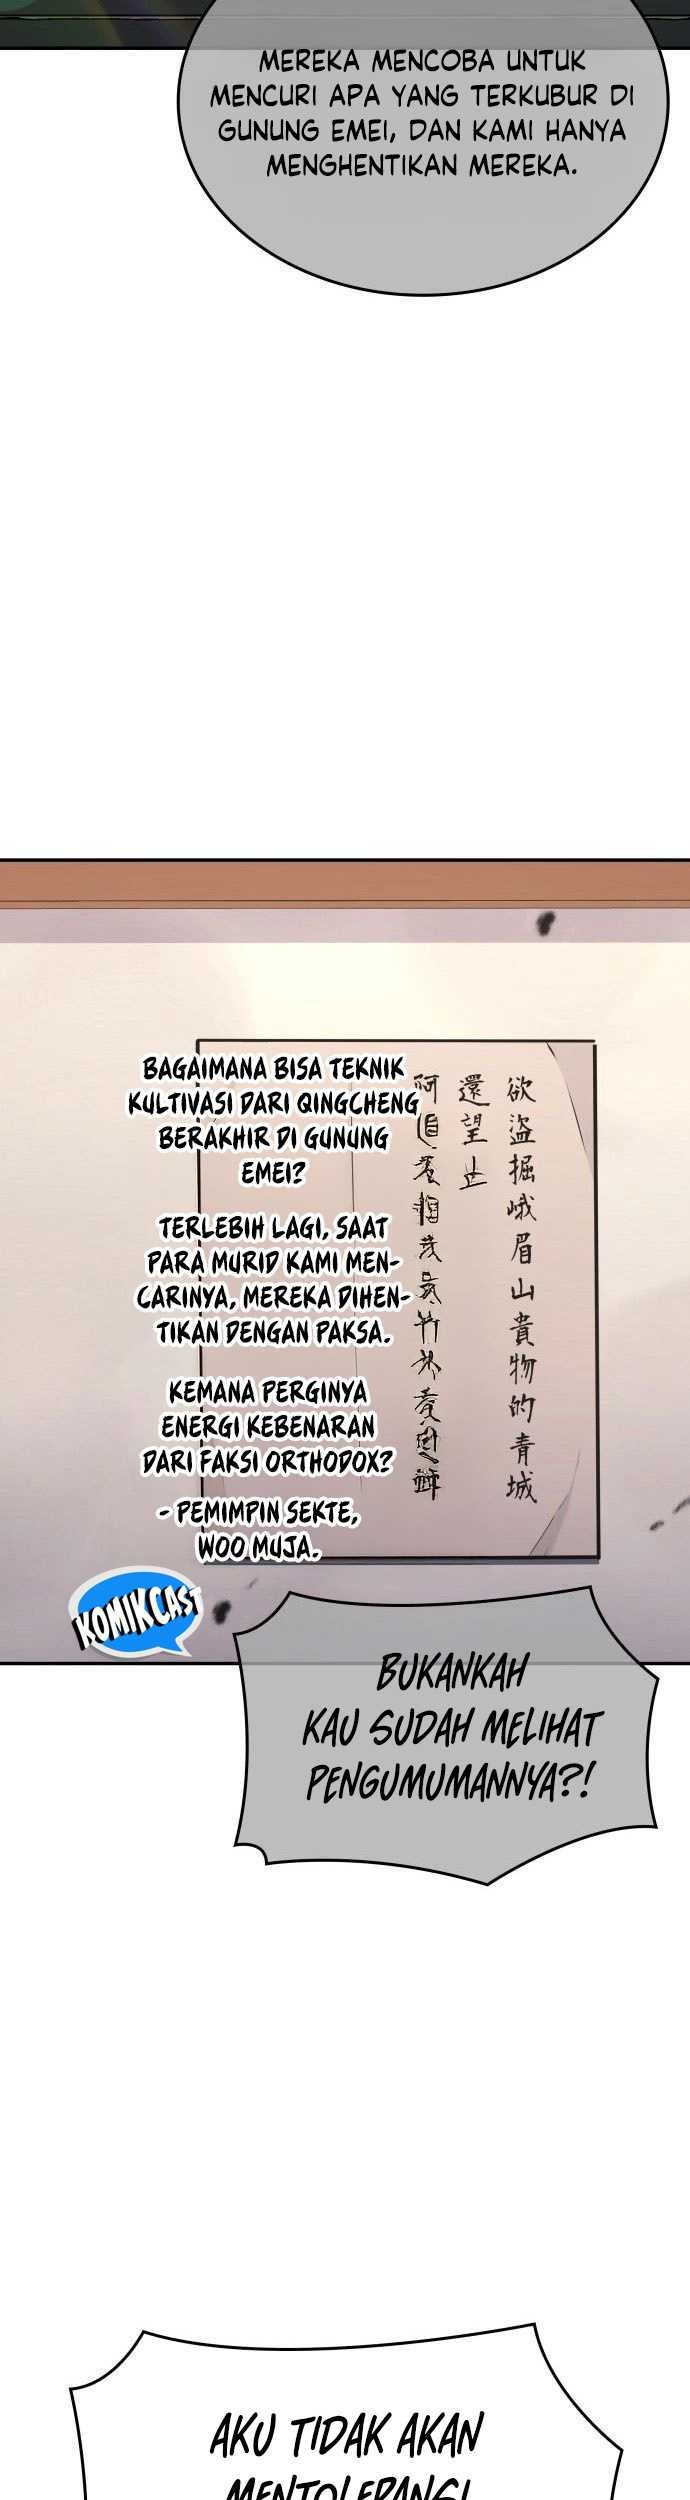 MEREKA MENCOBA UNTUK
MENCURI APA YANG TERKUBUR DI
GUNUNG EMEI, DAN KAMI HANYA
MENGHENTIKAN MEREKA.
欲盜掘峨眉山貴物的青城
還望止
BAGAIMANA BISA TEKNIK
KULTIVASI DARI QINGCHENG
BERAKHIR DI GUNUNG
EMEI?
TERLEBIH LAGI, SAAT
PARA MURID KAMI MEN-
CARINYA, MEREKA DIHEN-
TIKAN DENGAN PAKSA.
KEMANA PERGINYA
ENERGI KEBENARAN
DARI FAKSI ORTHODOX?
- PEMIMPIN SEKTE,
WOO MUJA.
KOMIKCAST
BUKANKAH
KAU SUDAH MELIHAT
PENGUMUMANNYA?!
AKU TIDAK AKAN
MENTOLERANSI